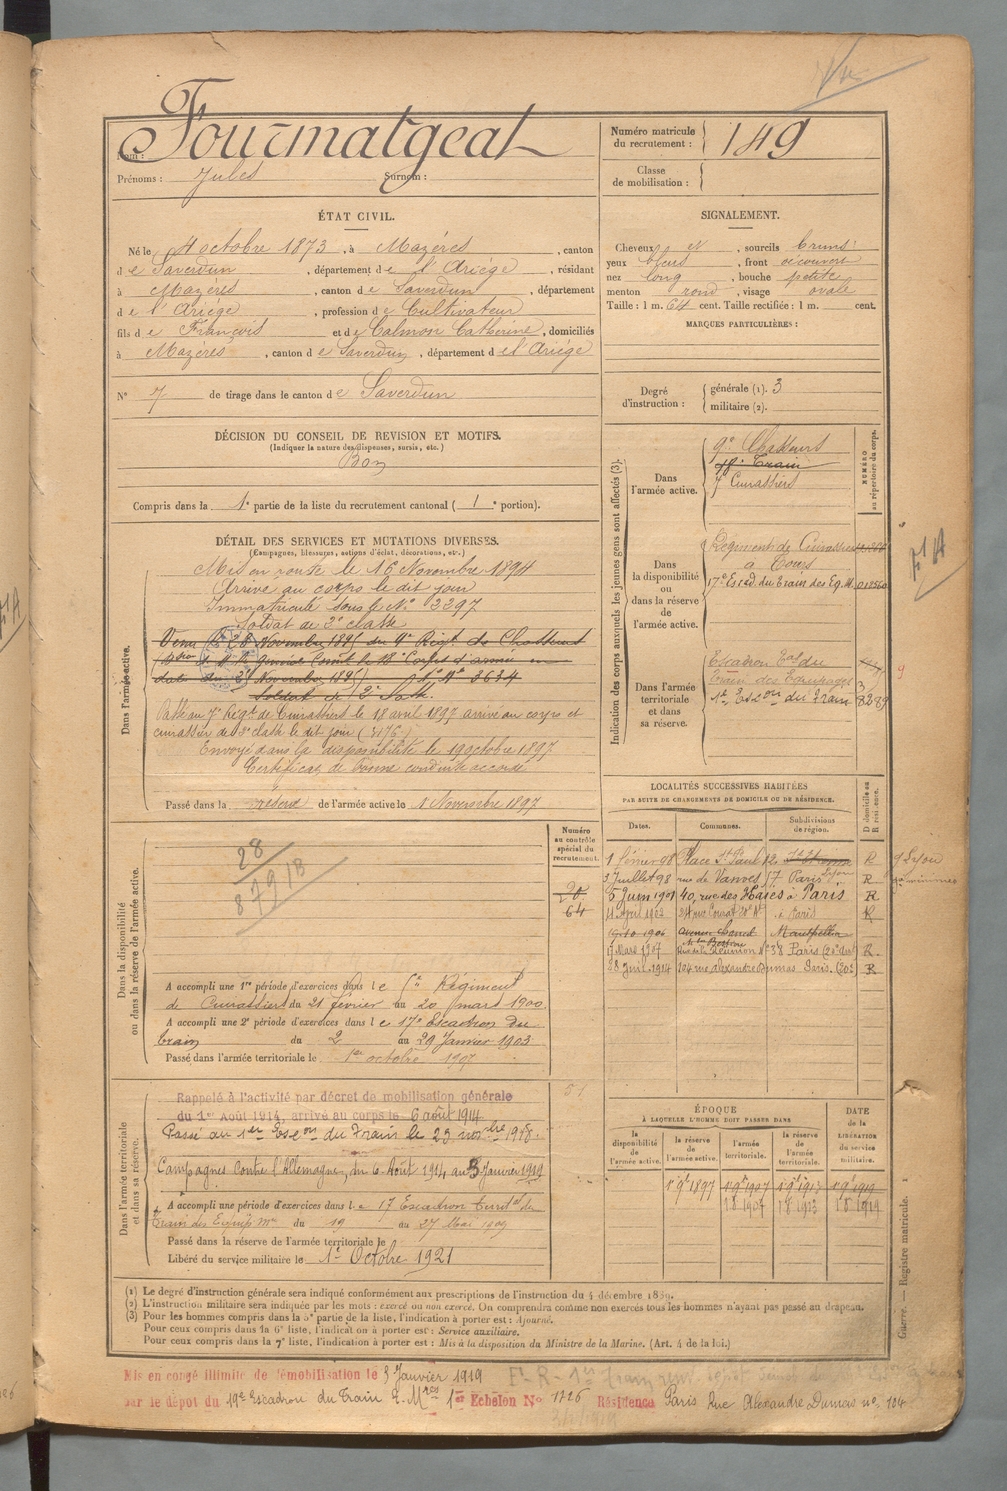 Nom : Fourmatgeat
Prénoms : Jules Surnom :
Numéro matricule du recrutement : 149
Classe de mobilisation :
ÉTAT CIVIL.
Né le 4 octobre 1873, à Mazéres, canton
de Saverdun, département de l'Ariége, résidant
à Mazéres, canton de Saverdun, département
de l'Ariége, profession de Cultivateur
fils de François et de Calmon Catherine, domiciliés
à Mazéres, canton de Saverdun, département de l'Ariége
N° 7 de tirage dans le canton de Saverdun
SIGNALEMENT.
Cheveux et, sourcils bruns
yeux bleus, front découvert
nez long, bouche petite
menton rond, visage ovale
Taille : 1 m. 64 cent. Taille rectifiée : 1 m. cent.
MARQUES PARTICULIÈRES :
Degré d'instruction : générale (1). 3
militaire (2).
DÉCISION DU CONSEIL DE REVISION ET MOTIFS.
(Indiquer la nature des dispenses, sursis, etc.)
Bon
Compris dans la 1e partie de la liste du recrutement cantonal ( 1 e portion).
DÉTAIL DES SERVICES ET MUTATIONS DIVERSES.
(Campagnes, blessures, actions d'éclat, décorations, etc.)
Dans l'armée active.
Mis en route le 16 Novembre 1894
Arrivé au corps le dit jour
Immatriculé sous le N° 3397
Soldat de 2e classe
Venu le 28 Novembre 1895 du 9e Régt de Chasseurs
Soldat de 2e classe.
Passé au 7e Régt de Cuirassiers le 18 avril 1897 arrivé au corps et
cuirassier de 2e classe le dit jour (3176)
Envoyé dans la disponibilité le 19 octobre 1897
Certificat de bonne conduite accordé
Passé dans la réserve de l'armée active le 1 Novembre 1897
Indication des corps auxquels les jeunes gens sont affectés (3).
NUMÉRO au répertoire du corps.
Dans l'armée active.
9e Chasseurs
18e Train
7e Cuirassiers
Dans la disponibilité ou dans la réserve de l'armée active.
Régiment de Cuirassiers
à Tours
17e Escad du train des Eq. M.
Dans l'armée territoriale et dans sa réserve.
Escadron Eal du
train des Equipages
1er Escon du Train 8289
9
LOCALITÉS SUCCESSIVES HABITÉES
PAR SUITE DE CHANGEMENTS DE DOMICILE OU DE RÉSIDENCE.
Dates. Communes. Subdivisions de région. D domicile ou R résidence.
1 février 98 Place St Paul 12 R
3 Juillet 98 rue de Vanves 17 Paris R
5 Juin 1901 40, rue des Haies à Paris R
11 Avril 1903 à Paris R
Montpellier
17 Mars 1907 Réunion N° 38 Paris R.
28 Juil. 1914 104 rue Alexandre Dumas Paris. (20e) R
Numéro au contrôle spécial du recrutement.
20
64
Dans la disponibilité ou dans la réserve de l'armée active.
28
A accompli une 1re période d'exercices dans le Régiment
de Cuirassiers du 21 février au 20 mars 1900
A accompli une 2e période d'exercices dans le 17e Escadron du
train du 2 au 29 Janvier 1903
Passé dans l'armée territoriale le 1er octobre 1907
Dans l'armée territoriale et dans sa réserve.
Rappelé à l'activité par décret de mobilisation générale
du 1er Août 1914, arrivé au corps le 6 août 1914
Passé au 1er Escon du Train le 23 nobre 1918.
Campagnes Contre l'Allemagne, du 6 Août 1914 au 3 Janvier 1919
A accompli une période d'exercices dans le 17 Escadron territ de
Train des Equip. mre du 19 au 27 Mai 1909
Passé dans la réserve de l'armée territoriale le
Libéré du service militaire le 1er Octobre 1921
ÉPOQUE
À LAQUELLE L'HOMME DOIT PASSER DANS
DATE DE LA LIBÉRATION du service militaire.
la disponibilité de l'armée active. la réserve de l'armée active. l'armée territoriale. la réserve de l'armée territoriale.
(1) Le degré d'instruction générale sera indiqué conformément aux prescriptions de l'instruction du 4 décembre 1889.
(2) L'instruction militaire sera indiquée par les mots : exercé ou non exercé. On comprendra comme non exercés tous les hommes n'ayant pas passé au drapeau.
(3) Pour les hommes compris dans la 5e partie de la liste, l'indication à porter est : Ajourné.
Pour ceux compris dans la 6e liste, l'indication à porter est : Service auxiliaire.
Pour ceux compris dans la 7e liste, l'indication à porter est : Mis à la disposition du Ministre de la Marine. (Art. 4 de la loi.)
Guerre. — Registre matricule. 1
Mis en congé illimité de démobilisation le 3 Janvier 1919
par le dépot du 19e Escadron du Train E. Mres 1er Echelon No 1726 Résidence Paris Rue Alexandre Dumas no. 104